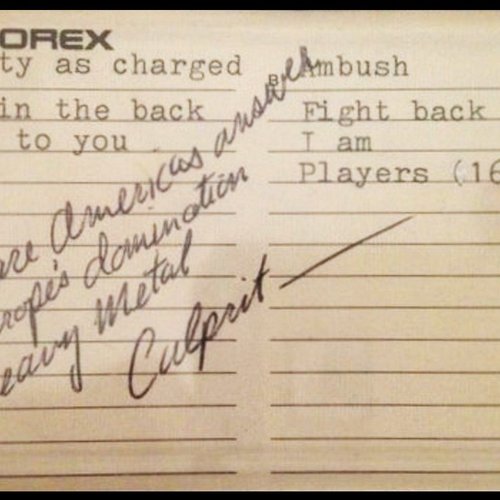 OREX
ty as charged
in the back
to you
B
Ambush
Fight back
I am
Players (16
are Americas answer
rope's domination
eavy Metal
Culprit